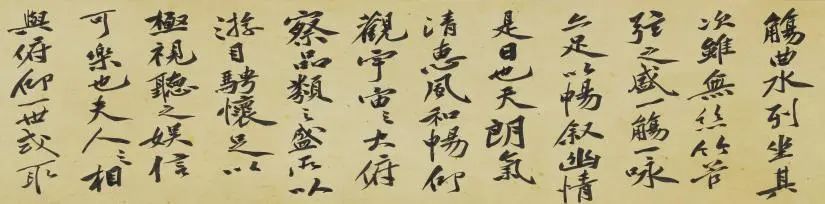 觴曲水列坐其
次雖無絲竹管
弦之盛一觴一咏
亦足以暢叙幽情
是日也天朗氣
清惠風和暢仰
觀宇宙之大俯
察品類之盛所以
游目騁懷足以
極視聽之娱信
可樂也夫人之相
與俯仰一世或取